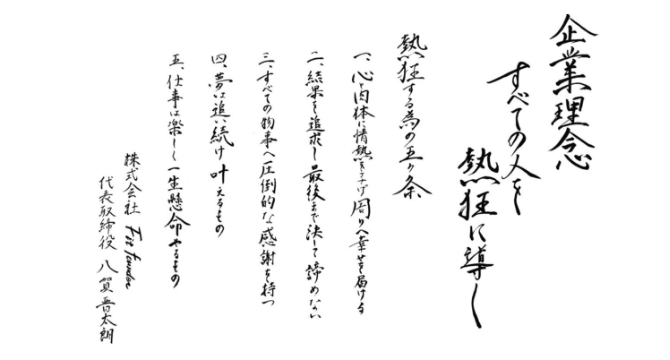 企業理念
すべての人を
熱狂に導く
熱狂する為の五ヶ条
一、心と肉体に情熱を 周りへ幸せを届ける
二、結果を追求し最後まで決して諦めない
三、すべての物事へ圧倒的な感謝を持つ
四、夢は追い続け叶えるもの
五、仕事は楽しく一生懸命やるもの
株式会社
代表取締役 八賀晋太朗